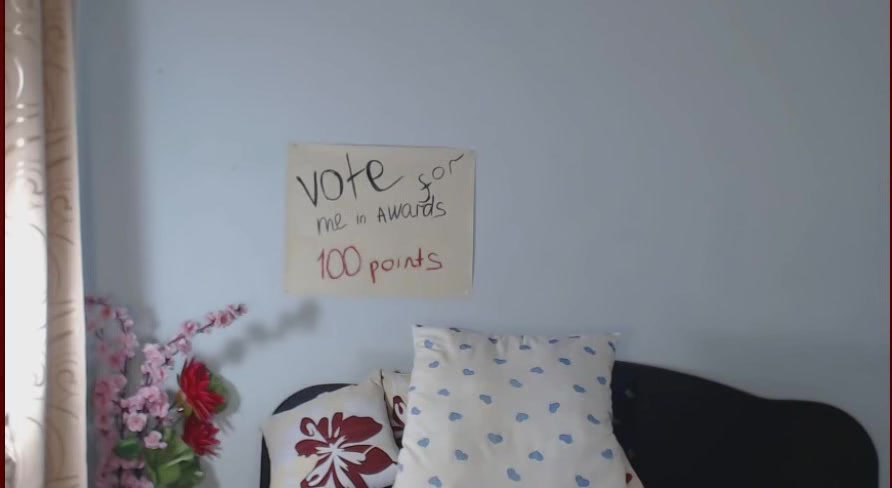 vote for
me in Awards
100 points